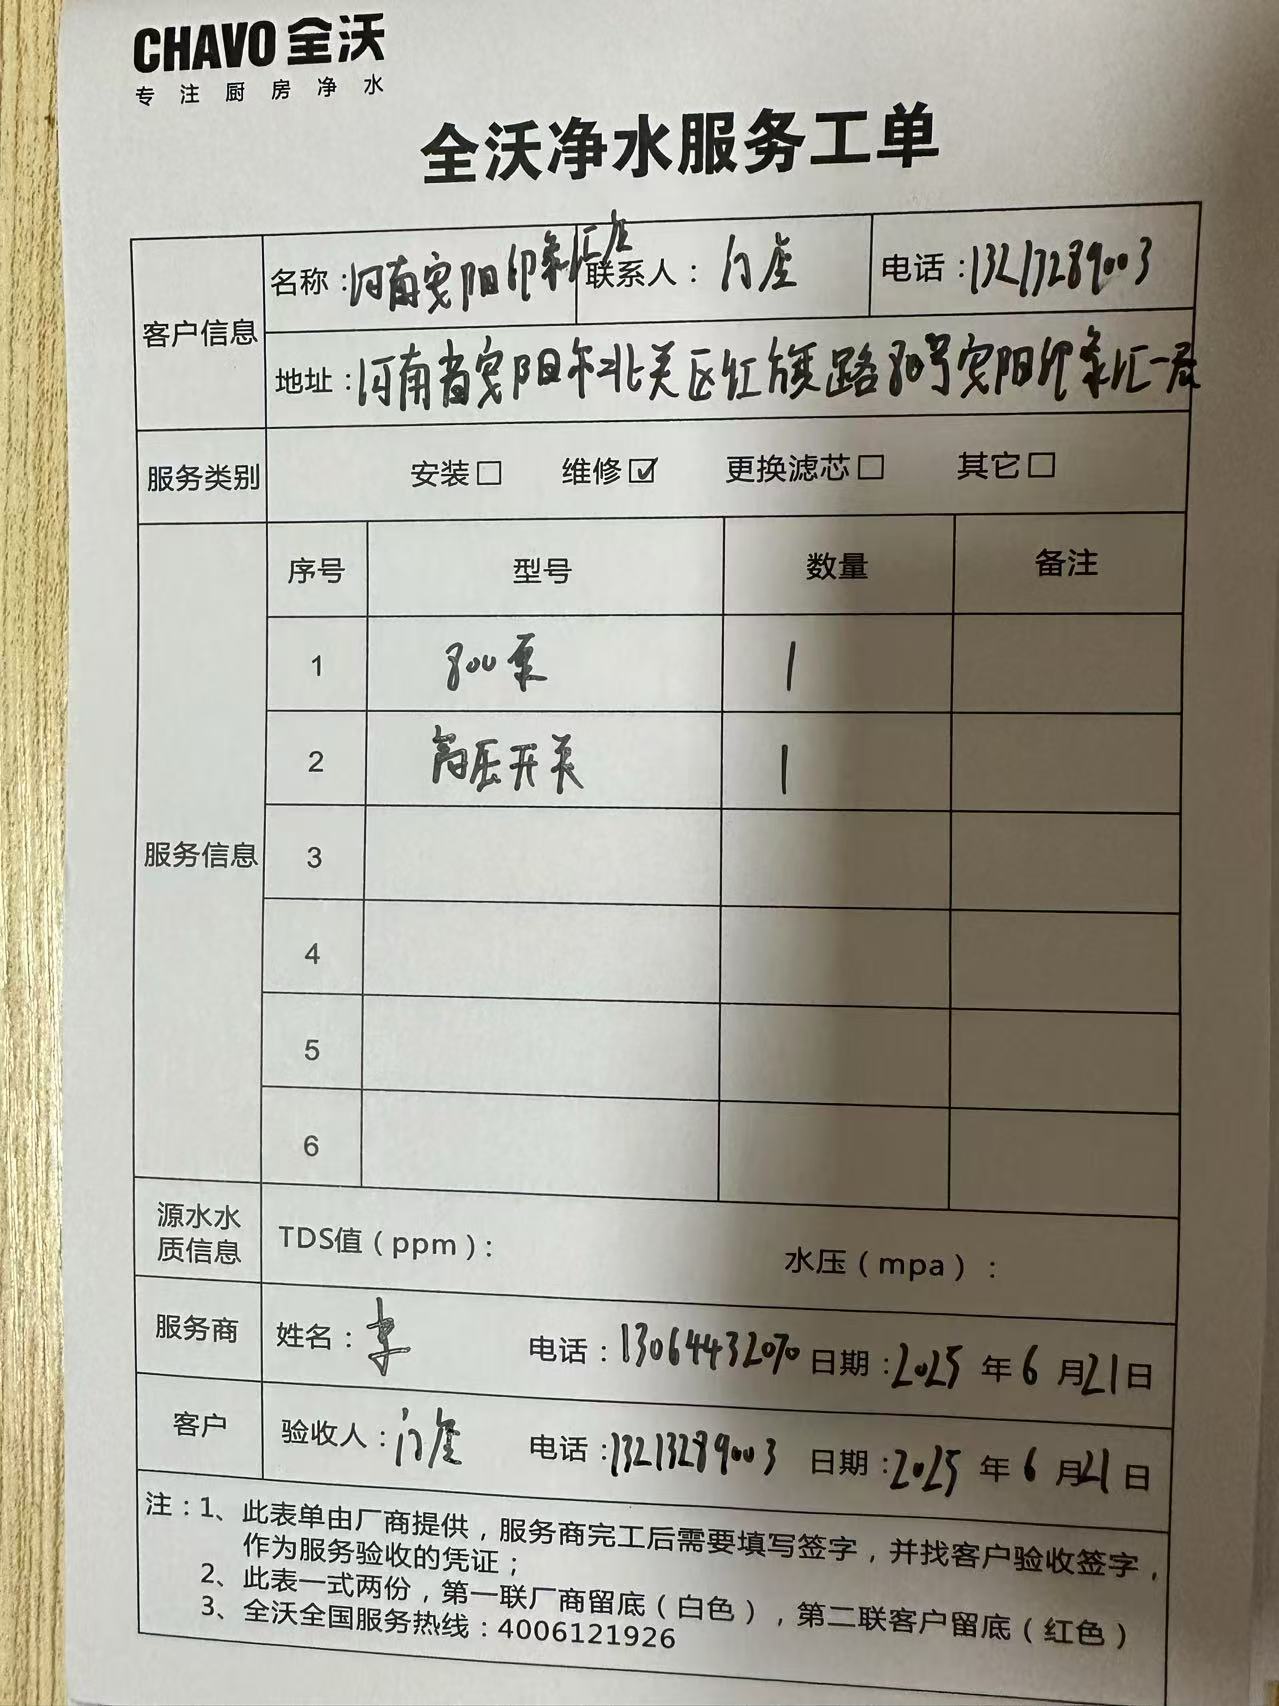 CHAVO 全沃
专注厨房净水
全沃净水服务工单
客户信息
名称：河南安阳印象汇店 联系人：门店 电话：13213289003
地址：河南省安阳市北关区红旗路80号安阳印象汇一层
服务类别 安装□ 维修☑ 更换滤芯□ 其它□
服务信息
序号 型号 数量 备注
1 800泵 1
2 高压开关 1
3
4
5
6
源水水质信息 TDS值（ppm）： 水压（mpa）：
服务商 姓名：李 电话：13064432070 日期：2025年6月21日
客户 验收人：门店 电话：13213289003 日期：2025年6月21日
注：1、此表单由厂商提供，服务商完工后需要填写签字，并找客户验收签字，
作为服务验收的凭证；
2、此表一式两份，第一联厂商留底（白色），第二联客户留底（红色）
3、全沃全国服务热线：4006121926